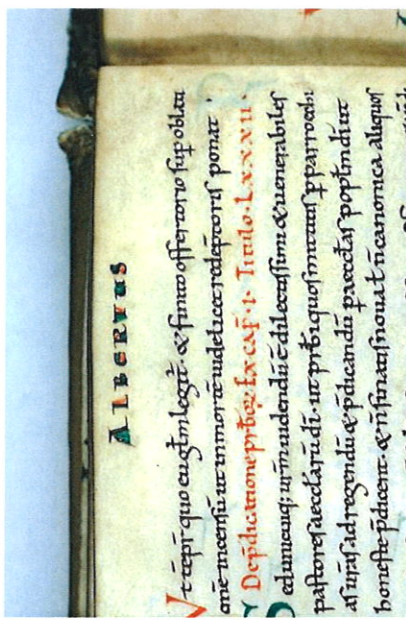 ALBERTVS
offertorio sup oblata
incensū ut in morte uidelicet redēptoris ponat
De p̄dicatione pr̄boꝝ Ex CAP̄. I. Titulo. LXXXII.
Sed unicuiq; ur̄m uidendū ē dilectissimi & uenerabiles
pastores aecclarū dī. ut pr̄bi quos mittitis ꝑ parrochi
as ur̄as ad regendū & p̄dicandū ꝑ aecctas dī ut
honeste p̄dicent. & n̄ sinatis noua ł n̄ canonica aliquos